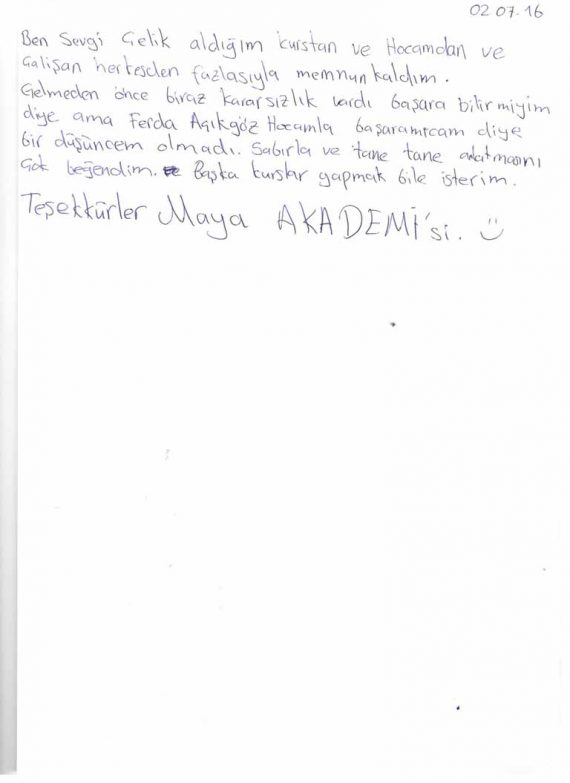 02.07.16
Ben Sevgi Çelik aldığım kurstan ve Hocamdan ve
Çalışan herkesden fazlasıyla memnun kaldım.
Gelmeden önce biraz kararsızlık vardı başara bilirmiyim
diye ama Ferda Açıkgöz Hocamla başaramıcam diye
bir düşüncem olmadı. Sabırla ve tane tane anlatmasını
Çok beğendim. Başka kurslar yapmak bile isterim.
Teşekkürler Maya AKADEMİ'si. :)